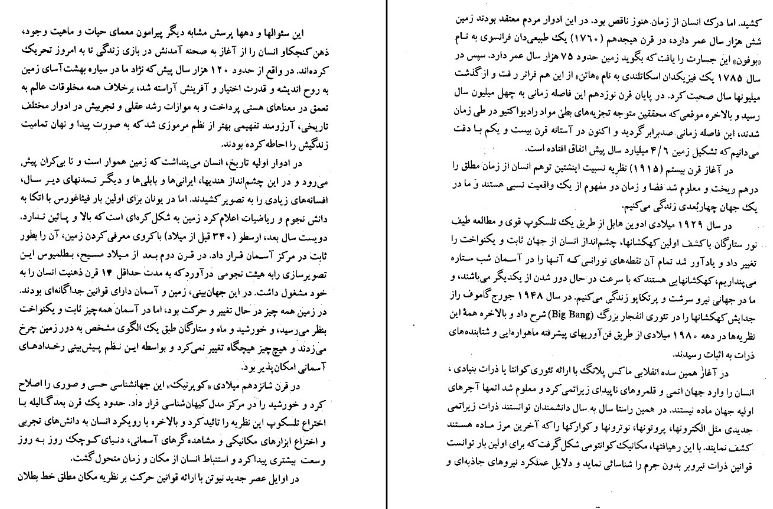 این سئوالها و دهها پرسش مشابه دیگر پیرامون معمای حیات و ماهیت وجود،
ذهن کنجکاو انسان را از آغاز به صحنه آمدنش در بازی زندگی تا به امروز تحریک
کرده‌اند. در واقع از حدود ۱۲۰ هزار سال پیش که نژاد ما در سیاره بهشت‌آسای زمین
به روح اندیشه و قدرت اختیار و آفرینش آراسته شد، برخلاف همه مخلوقات عالم به
تعمق در معناهای هستی پرداخت و به موازات رشد عقلی و تجربیش در ادوار مختلف
تاریخی، آرزومند تفهیمی بهتر از نظم مرموزی شد که به صورت پیدا و نهان تمامیت
زندگیش را احاطه کرده بودند.
در ادوار اولیه تاریخ، انسان می‌پنداشت که زمین هموار است و تا بی‌کران پیش
می‌رود و در این چشم‌انداز هندیها، ایرانی‌ها و بابلی‌ها و دیگر تمدنهای دیر سال،
افسانه‌های زیادی را به تصویر کشیدند. اما در یونان برای اولین بار فیثاغورس با اتکا به
دانش نجوم و ریاضیات اعلام کرد زمین به شکل کره‌ای است که بالا و پائین ندارد.
دویست سال بعد، ارسطو (۳۴۰ قبل از میلاد) با کروی معرفی کردن زمین، آن را بطور
ثابت در مرکز آسمان قرار داد. در قرن دوم بعد از میلاد مسیح، بطلمیوس این
تصویرسازی را به هیئت نجومی درآورد که به مدت حداقل ۱۴ قرن ذهنیت انسان را به
خود مشغول داشت. در این جهان‌بینی، زمین و آسمان دارای قوانین جداگانه‌ای بودند.
در زمین همه چیز در حال تغییر و حرکت بود، اما در آسمان همه‌چیز ثابت و یکنواخت
بنظر می‌رسید، و خورشید و ماه و ستارگان طبق یک الگوی مشخص به دور زمین چرخ
می‌زدند و هیچ‌چیز هیچگاه تغییر نمی‌کرد و بواسطه این نظم پیش‌بینی رخدادهای
آسمانی امکان‌پذیر بود.
در قرن شانزدهم میلادی «کوپرنیک»، این جهانشناسی حسی و صوری را اصلاح
کرد و خورشید را در مرکز مدل کیهان‌شناسی قرار داد. حدود یک قرن بعد گالیله با
اختراع تلسکوپ این نظریه را تائید کرد و بالاخره با رویکرد انسان به دانش‌های تجربی
و اختراع ابزارهای مکانیکی و مشاهده‌گرهای آسمانی، دنیای کوچک روز به روز
وسعت بیشتری پیدا کرد و استنباط انسان از مکان و زمان متحول گشت.
در اوایل عصر جدید نیوتن با ارائه قوانین حرکت بر نظریه مکان مطلق خط بطلان
کشید. اما درک انسان از زمان هنوز ناقص بود. در این ادوار مردم معتقد بودند زمین
شش هزار سال عمر دارد، در قرن هیجدهم (۱۷۶۰) یک طبیعی‌دان فرانسوی به نام
«بوفون» این جسارت را یافت که بگوید زمین حدود ۷۵ هزار سال عمر دارد. سپس در
سال ۱۷۸۵ یک فیزیکدان اسکاتلندی به نام «هاتن» از این هم فراتر رفت و از گذشت
میلیونها سال صحبت کرد. در پایان قرن نوزدهم این فاصله زمانی به چهل میلیون سال
رسید و بالاخره موقعی که محققین متوجه تجزیه‌های بطئی مواد رادیواکتیو در طی زمان
شدند، این فاصله زمانی صدبرابر گردید و اکنون در آستانه قرن بیست و یکم با دقت
می‌دانیم که تشکیل زمین ۴/۶ میلیارد سال پیش اتفاق افتاده است.
در آغاز قرن بیستم (۱۹۱۵) نظریه نسبیت اینشتین توهم انسان از زمان مطلق را
درهم ریخت و معلوم شد فضا و زمان دو مفهوم از یک واقعیت نسبی هستند و ما در
یک جهان چهاربُعدی زندگی می‌کنیم.
در سال ۱۹۲۹ میلادی ادوین هابل از طریق یک تلسکوپ قوی و مطالعه طیف
نور ستارگان با کشف اولین کهکشانها، چشم‌انداز انسان از جهان ثابت و یکنواخت را
تغییر داد و یادآور شد تمام آن نقطه‌های نورانی که آنها را در آسمان شب ستاره
می‌پنداریم، کهکشانهایی هستند که با سرعت در حال دور شدن از یکدیگر می‌باشند، و
ما در جهانی نیرو سرشت و پرتکاپو زندگی می‌کنیم. در سال ۱۹۴۸ جورج گاموف راز
جدایش کهکشانها را در تئوری انفجار بزرگ (Big Bang) شرح داد و بالاخره همهٔ این
نظریه‌ها در دهه ۱۹۸۰ میلادی از طریق فن‌آوریهای پیشرفته ماهواره‌ایی و شتابنده‌های
ذرات به اثبات رسیدند.
در آغاز همین سده انقلابی ماکس پلانک با ارائه تئوری کوانتا یا ذرات بنیادی،
انسان را وارد جهان اتمی و قلمروهای ناپیدای زیراتمی کرد و معلوم شد اتمها آجرهای
اولیه جهان ماده نیستند. در همین راستا سال به سال دانشمندان توانستند ذرات زیراتمی
جدیدی مثل الکترونها، پروتونها، نوترونها و کوارکها را که آخرین مرز ماده هستند
کشف نمایند. با این رهیافتها، مکانیک کوانتومی شکل گرفت که برای اولین بار توانست
قوانین ذرات نیروبر بدون جرم را شناسائی نماید و دلایل عملکرد نیروهای جاذبه‌ای و